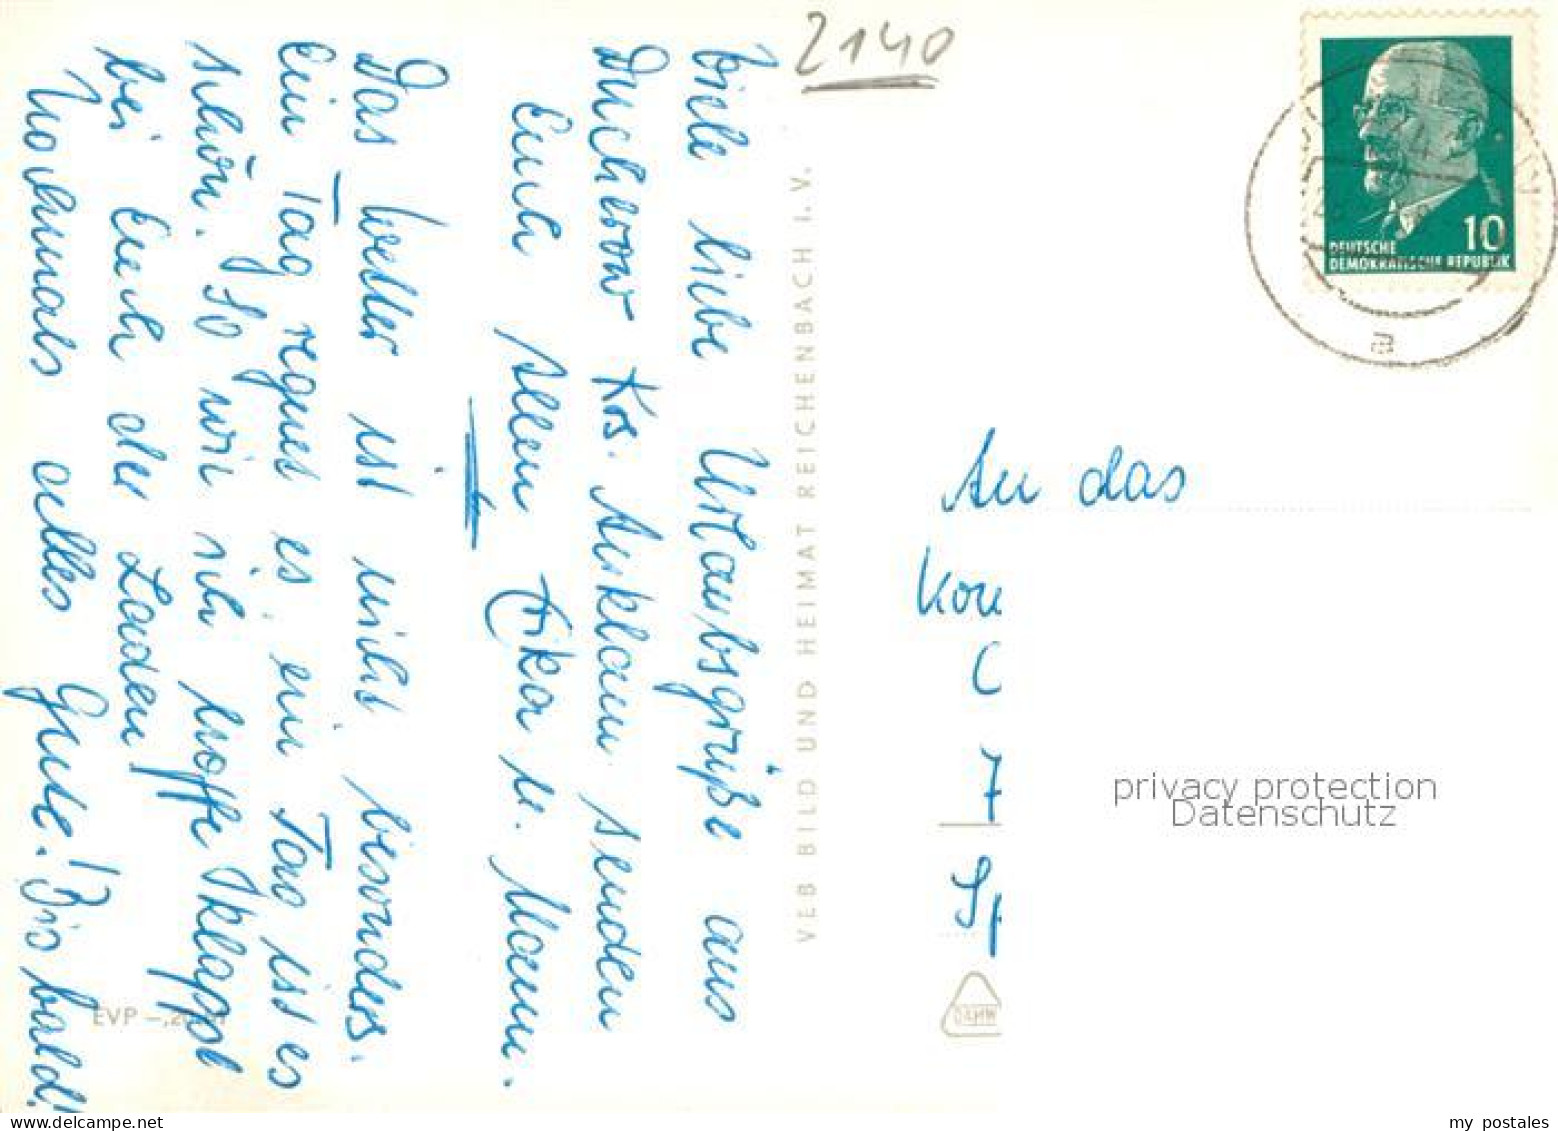 Viele liebe Urlaubsgrüße aus
Ducherow Krs. Anklam senden
Euch allen Erika u. Mann.
Das Wetter ist nicht besonders.
Ein Tag regnet es, ein Tag ist es
schön. So wir ich hoffe klappt
bei Euch der Laden!
Nochmals alles Gute! Bis bald!
VEB BILD UND HEIMAT REICHENBACH I. V.
EVP –,20
2140
10
DEUTSCHE
DEMOKRATISCHE REPUBLIK
a
An das
DAMW
privacy protection
Datenschutz
my postales